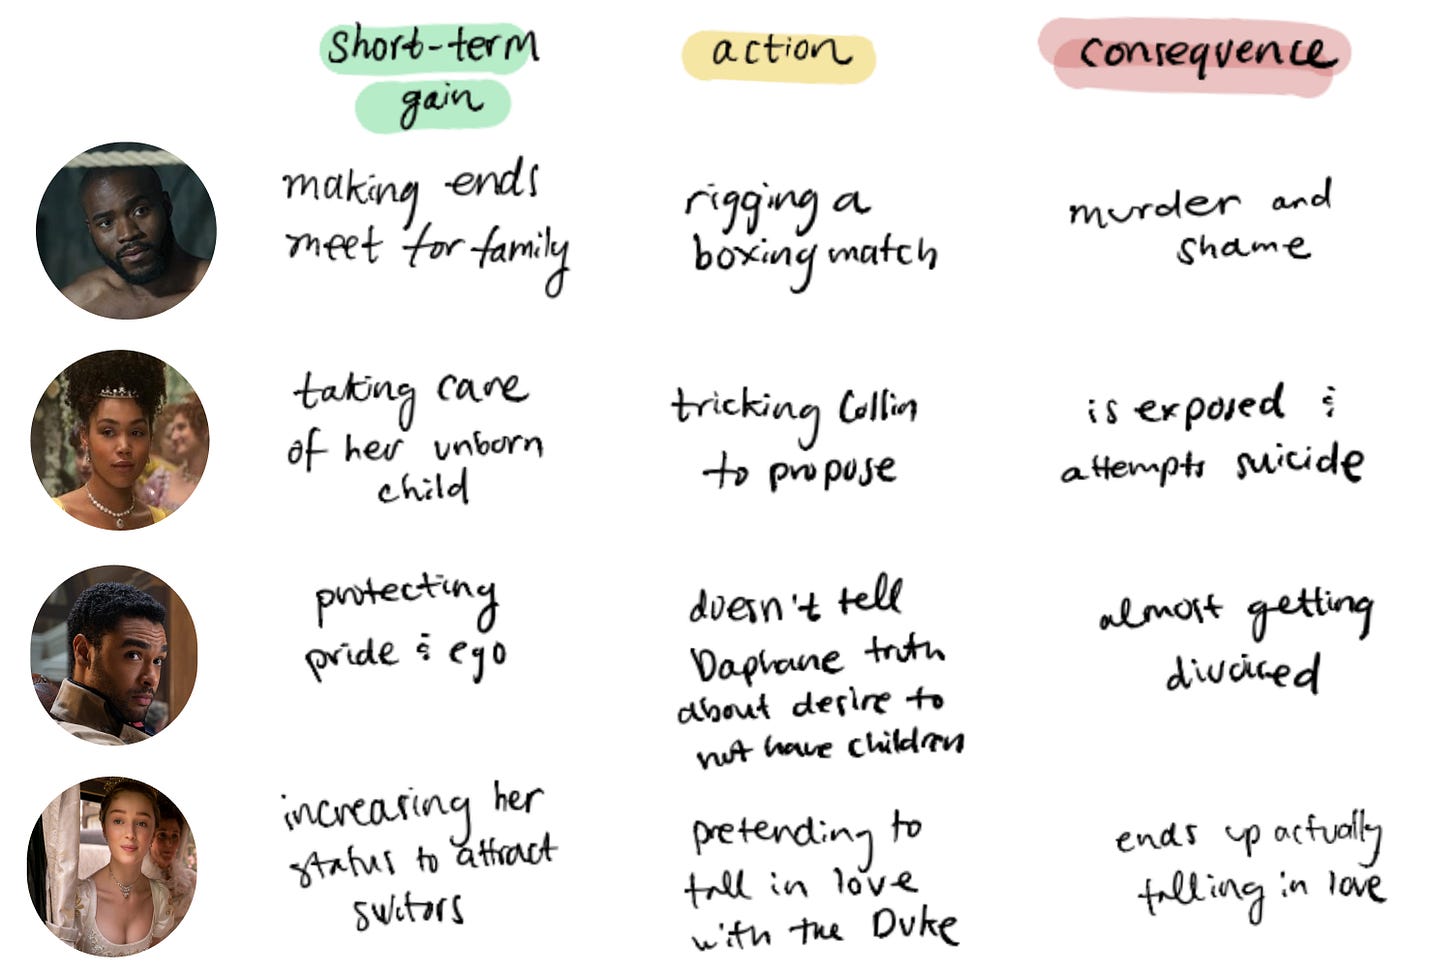 short-term
gain
action
consequence
making ends
meet for family
rigging a
boxing match
murder and
shame
taking care
of her unborn
child
tricking Collin
to propose
is exposed &
attempts suicide
protecting
pride & ego
doesn't tell
Daphane truth
about desire to
not have children
almost getting
divorced
increasing her
status to attract
suitors
pretending to
fall in love
with the Duke
ends up actually
falling in love